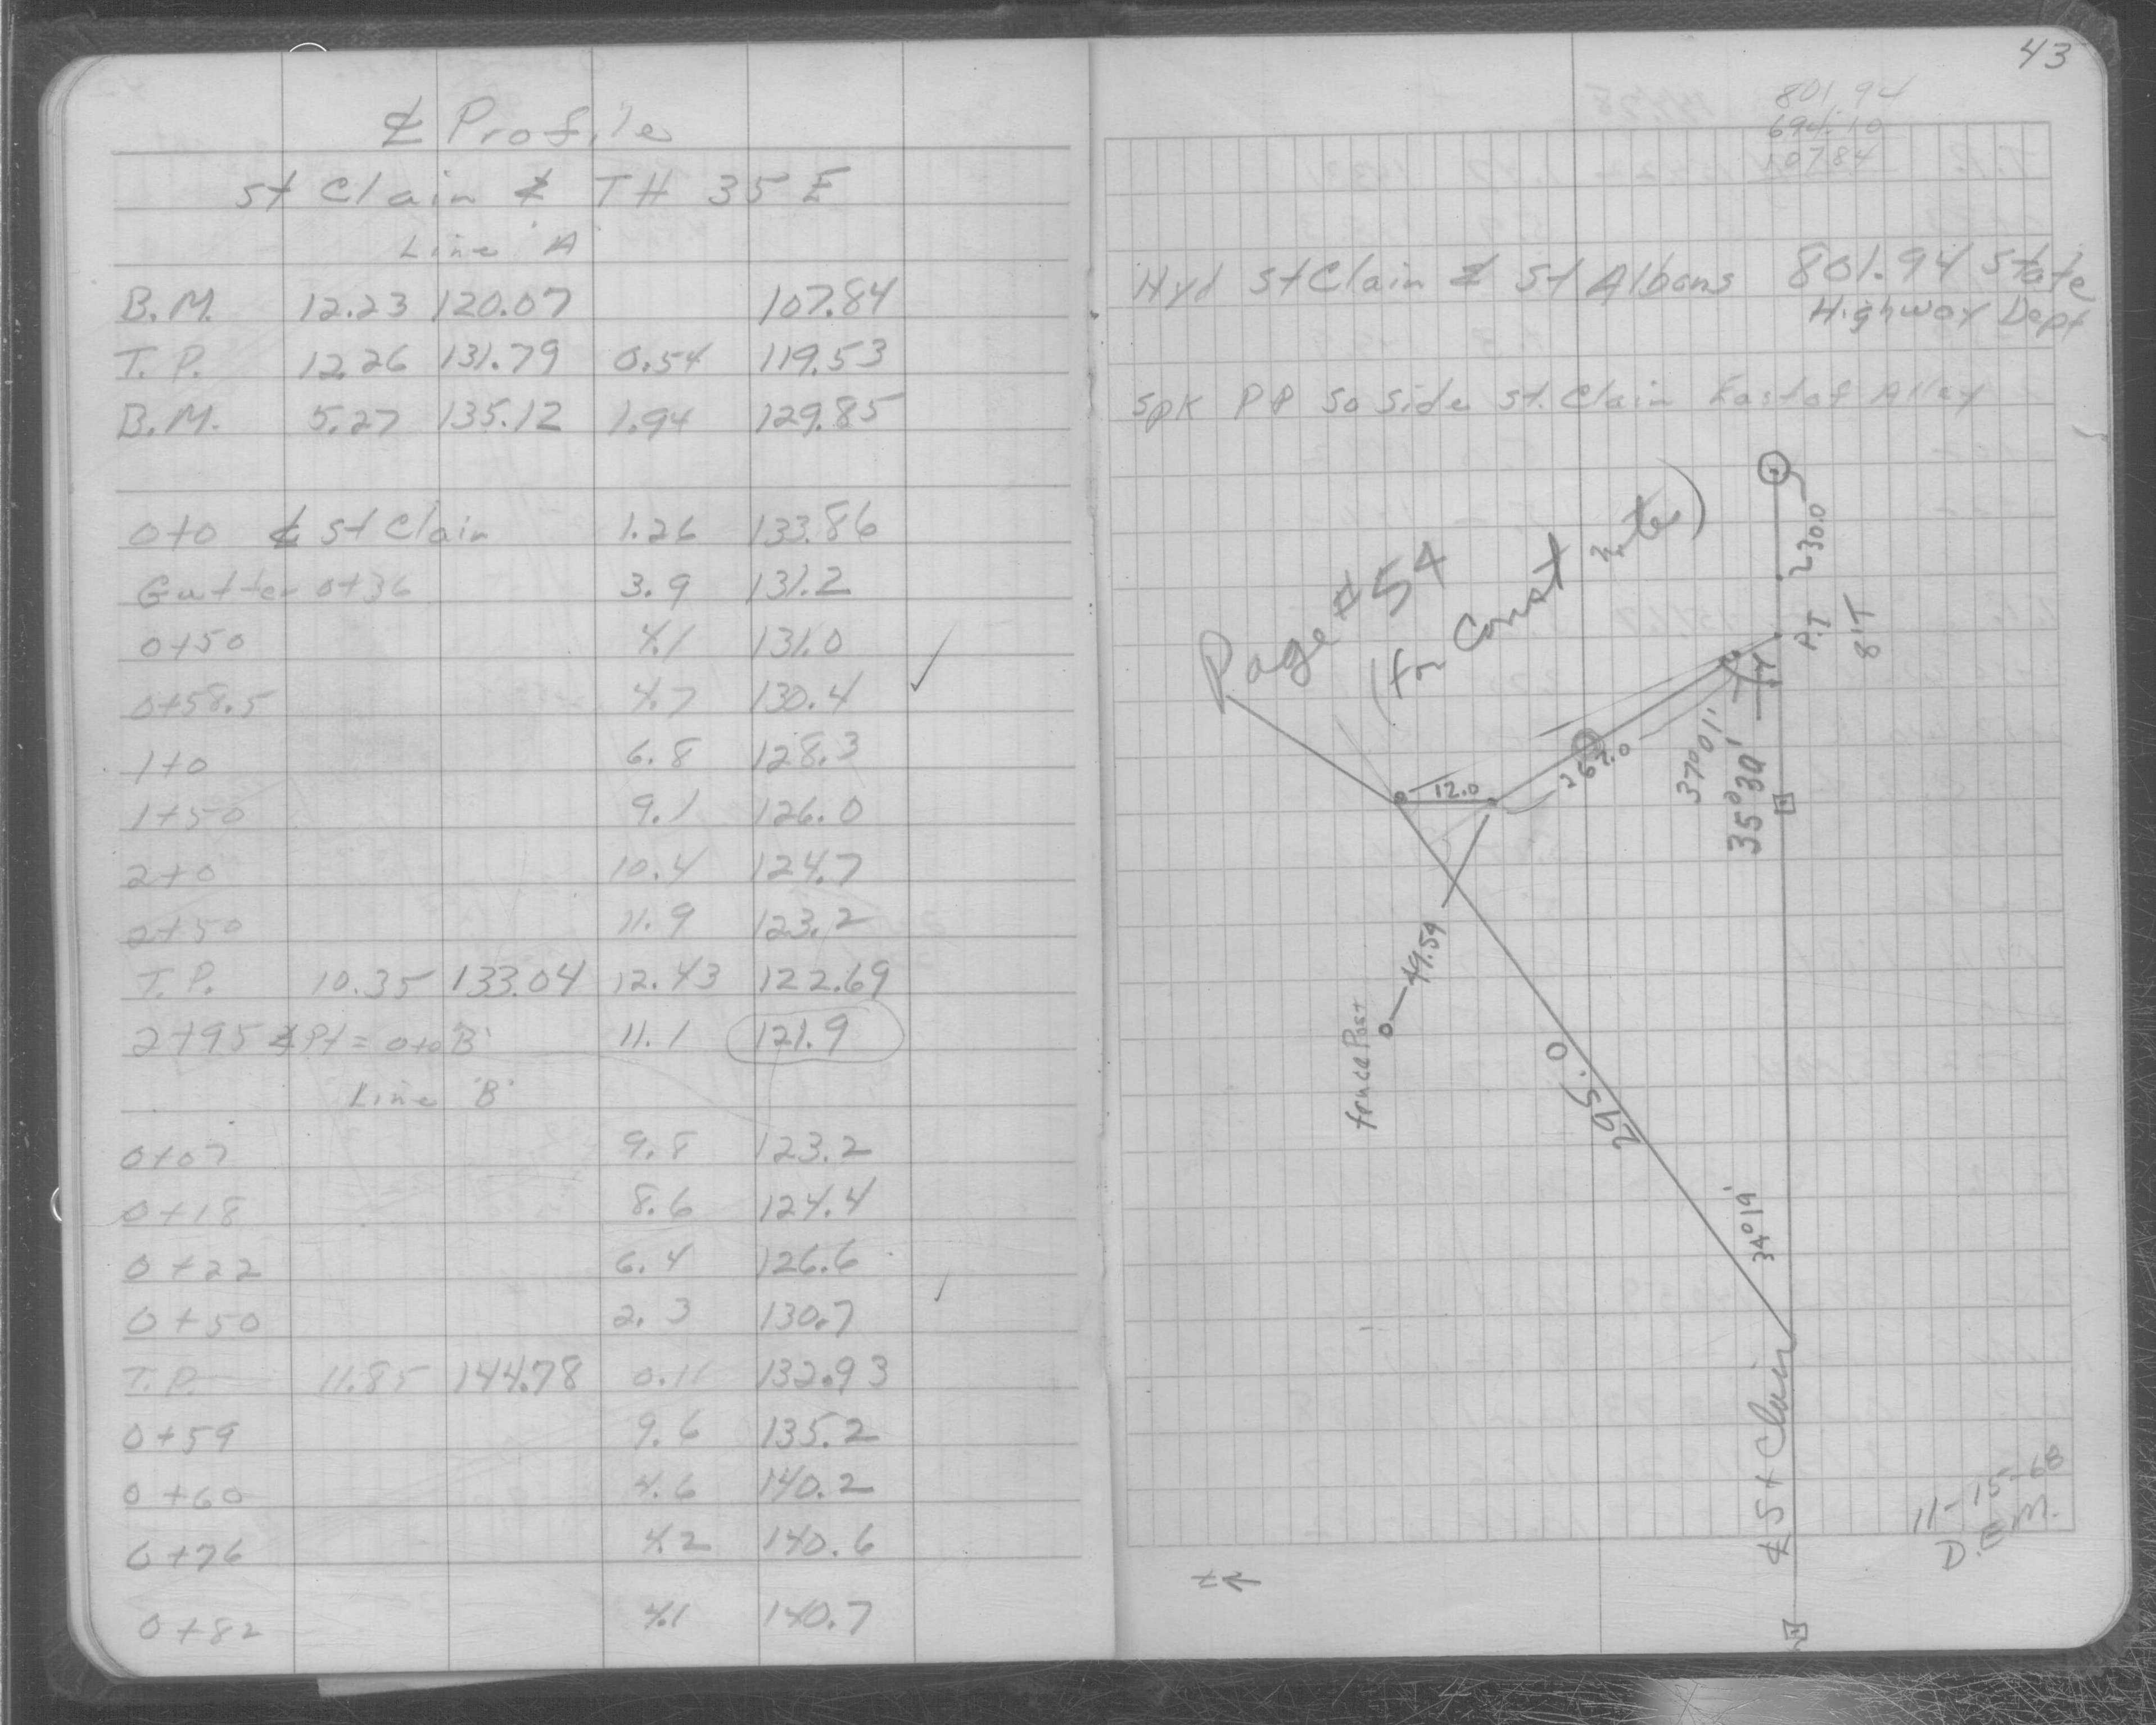 ℄ Profile
St Clair & TH 35 E
Line 'A'
B.M. 12.23 120.07 107.84
T.P. 12.26 131.79 0.54 119.53
B.M. 5.27 135.12 1.94 129.85
0+0 ℄ St Clair 1.26 133.86
Gutter 0+36 3.9 131.2
0+50 4.1 131.0 ✓
0+58.5 4.7 130.4
1+0 6.8 128.3
1+50 9.1 126.0
2+0 10.4 124.7
2+50 11.9 123.2
T.P. 10.35 133.04 12.43 122.69
2+95 ∡Pt = 0+0 'B' 11.1 121.9
Line 'B'
0+07 9.8 123.2
0+18 8.6 124.4
0+22 6.4 126.6
0+50 2.3 130.7
T.P. 11.85 144.78 0.11 132.93
0+59 9.6 135.2
0+60 4.6 140.2
0+76 4.2 140.6
0+82 4.1 140.7
43
801.94
694.10
107.84
Hyd St Clair & St Albans 801.94 State
Highway Dept
Spk PP So Side St. Clair East of Alley
Page #54
(for Const
230.0
P.T
8'T
12.0
267.0
37°01'
35°30'
49.59
fence Post
295.0
34°19'
℄ St Clair
11-15-68
D.E.M.